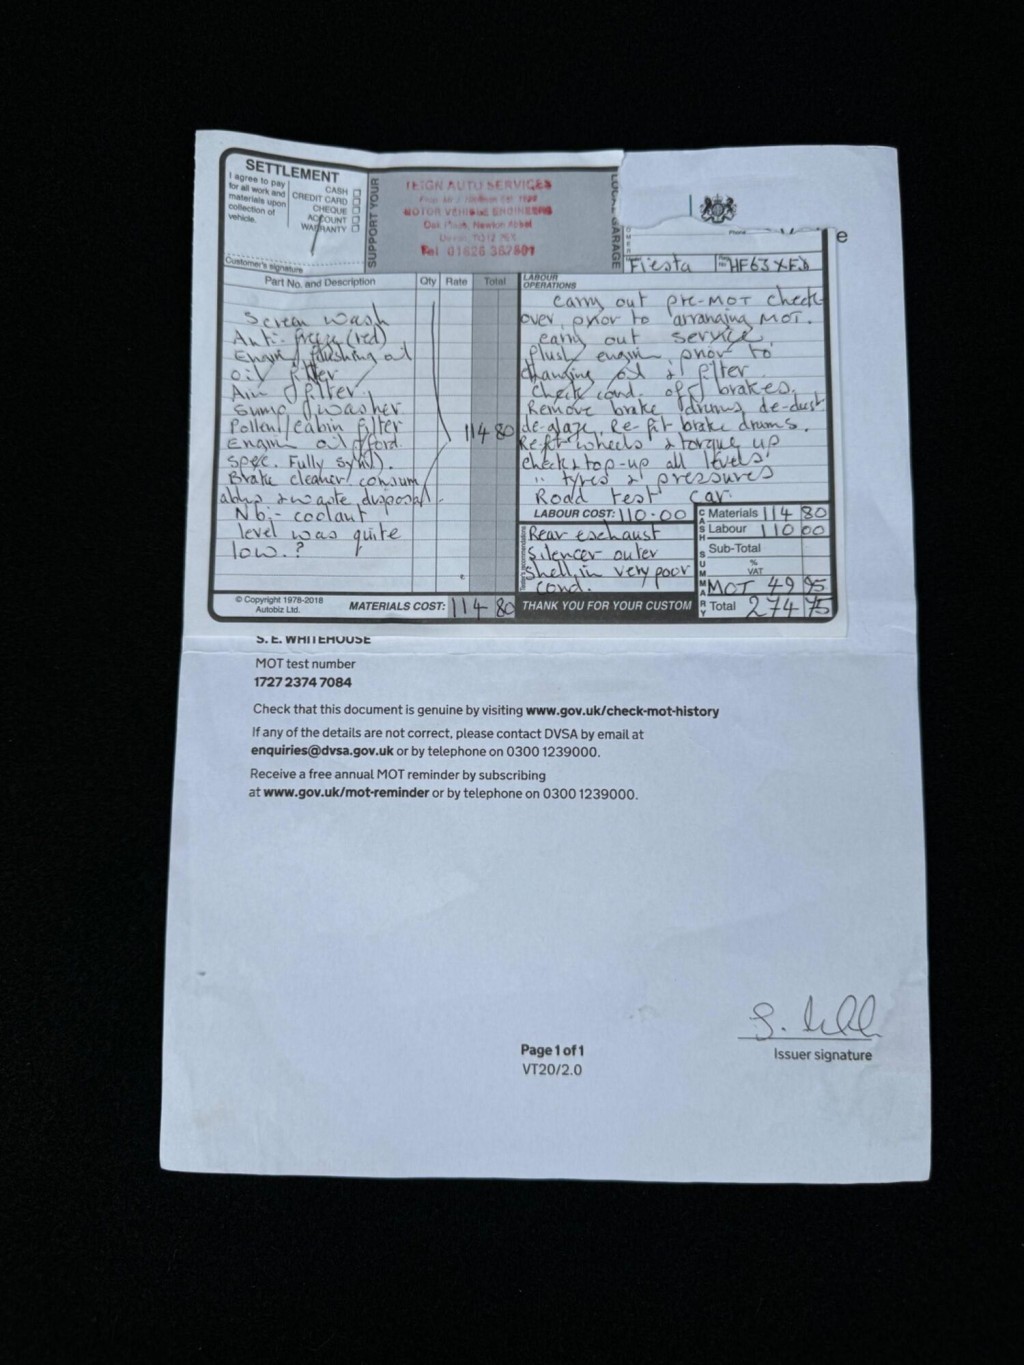 SETTLEMENT
I agree to pay
for all work and
materials upon
collection of
vehicle.
CASH
CREDIT CARD
CHEQUE
ACCOUNT
WARRANTY
Customer's signature
SUPPORT YOUR
TEIGN AUTO SERVICES
MOTOR VEHICLE ENGINEERS
Newton Abbot
Tel 01626 367891
LOCAL GARAGE
Phone
e
Fiesta HF63 XFD
Part No. and Description Qty Rate Total
Screen wash
Anti-freeze (red)
Engine flushing oil
oil filter
Air filter
Sump washer
Pollen/cabin filter
Engin oil ford.
spec. Fully synth).
Brake cleaner consum
ables & waste disposal
Nb:- coolant
level was quite
low.?
114 80
© Copyright 1978-2018
Autobiz Ltd.
MATERIALS COST: 114 80
LABOUR
OPERATIONS
carry out pre-MOT check
over, prior to arranging MOT.
carry out service,
flush engin, prior to
changing oil & filter
Check cond. off brakes.
Remove brake drums de-dust
de-glaze, Re-fit brake drums.
Re-fit wheels & torque up
check & top-up all levels
" tyres & pressures
Road test car.
LABOUR COST: 110.00
Rear exchaust
Silencer outer
Shell, in very poor
cond.
THANK YOU FOR YOUR CUSTOM
CASH SUMMARY
Materials 114 80
Labour 110 00
Sub-Total
%
VAT
MOT 49 95
Total 274 75
S. E. WHITEHOUSE
MOT test number
1727 2374 7084
Check that this document is genuine by visiting www.gov.uk/check-mot-history
If any of the details are not correct, please contact DVSA by email at
enquiries@dvsa.gov.uk or by telephone on 0300 1239000.
Receive a free annual MOT reminder by subscribing
at www.gov.uk/mot-reminder or by telephone on 0300 1239000.
Issuer signature
Page 1 of 1
VT20/2.0